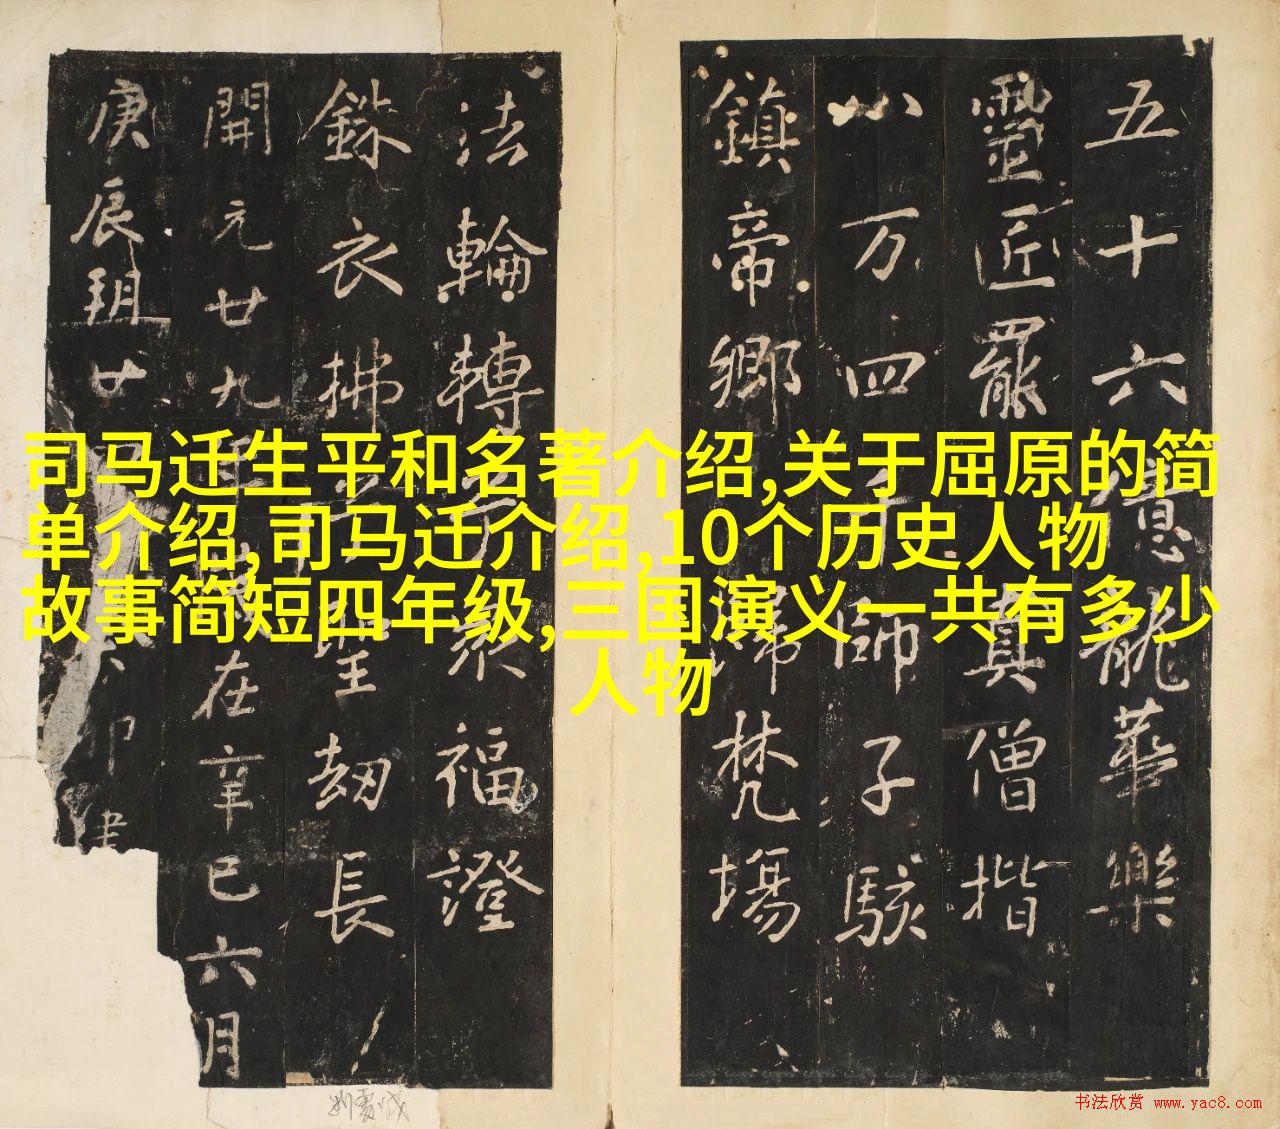 司马迁生平和名著介绍,关于屈原的简
单介绍,司马迁介绍,10个历史人物
故事简短四年级,三国演义一共有多少
人物
五十六億龍華樂
靈匠罷真僧揩
八万四千師子駭
鎮帝鄉歸梵場
法輪轉兮衆福澄
銖衣拂兮聖劫長
開元廿九年歲在辛巳六月
庚辰玥廿卯建
书法欣赏 www.yac8.com